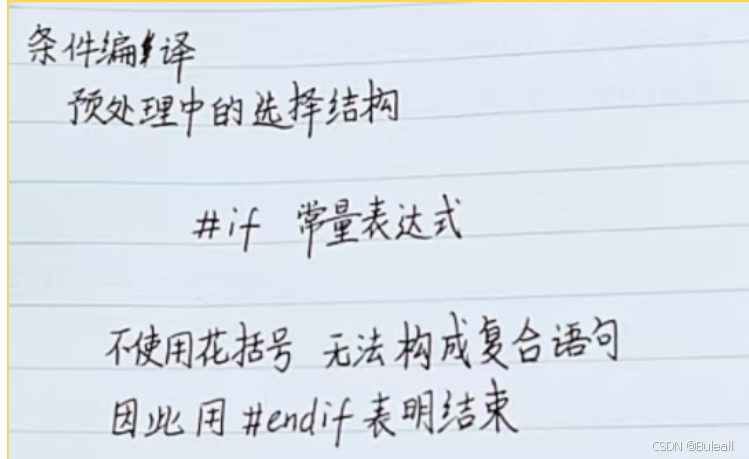 条件编译
预处理中的选择结构
#if 常量表达式
不使用花括号 无法构成复合语句
因此用 #endif 表明结束
CSDN @Buleall